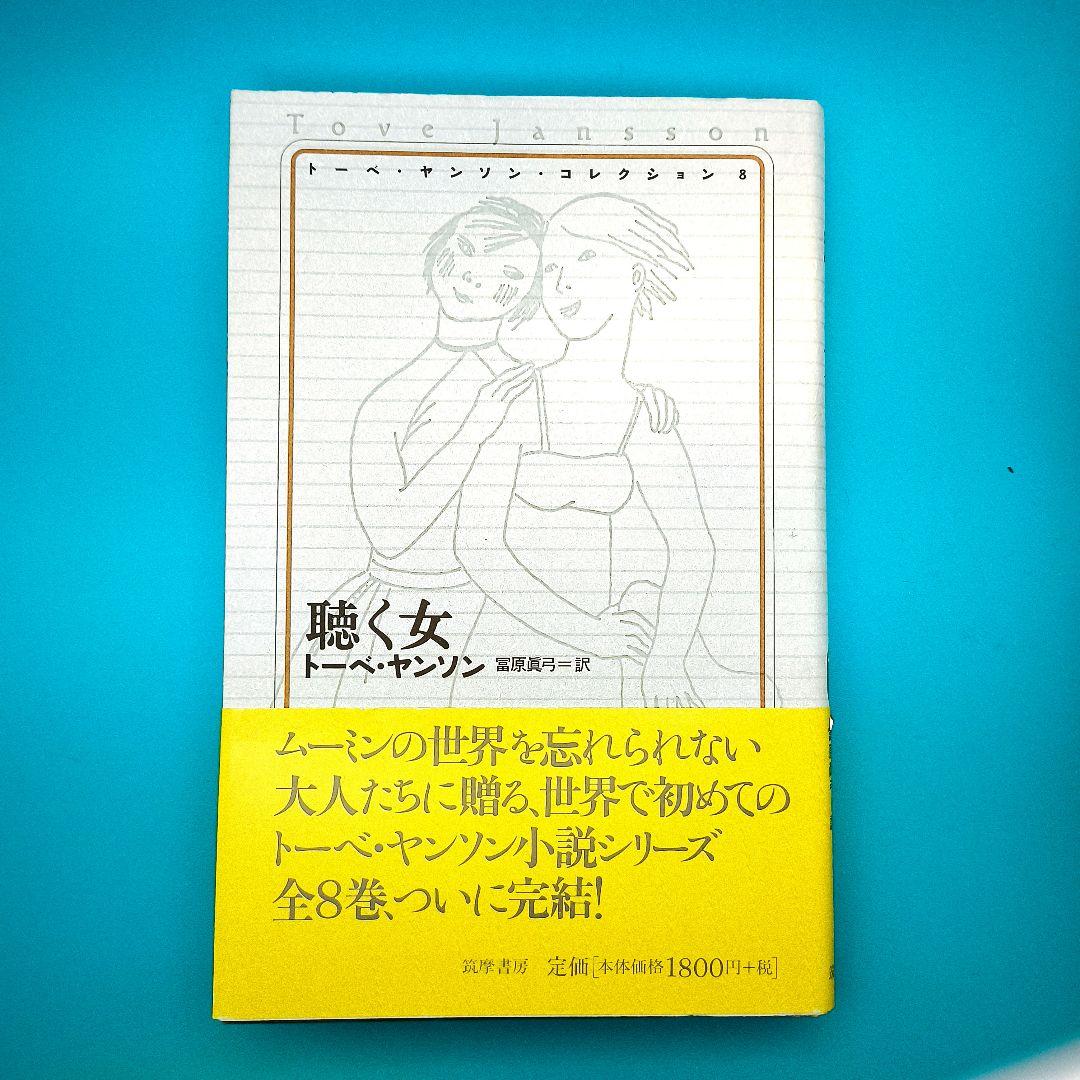 Tove Jansson
トーベ・ヤンソン・コレクション 8
聴く女
トーベ・ヤンソン 冨原眞弓＝訳
ムーミンの世界を忘れられない
大人たちに贈る、世界で初めての
トーベ・ヤンソン小説シリーズ
全8巻、ついに完結!
筑摩書房 定価[本体価格1800円+税]